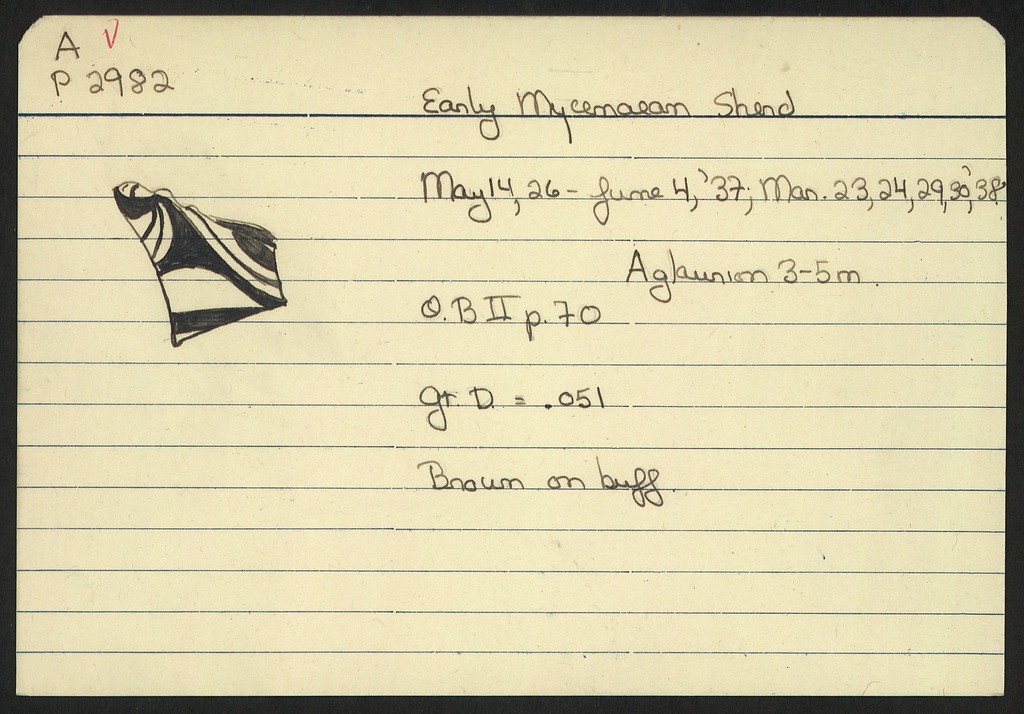 A √
P 2982
Early Mycenaean Sherd
May 14, 26 - June 4, '37; Mar. 23, 24, 29, 30, '38
Aglaurion 3-5m.
O.B II p. 70
gr D. = .051
Brown on buff.